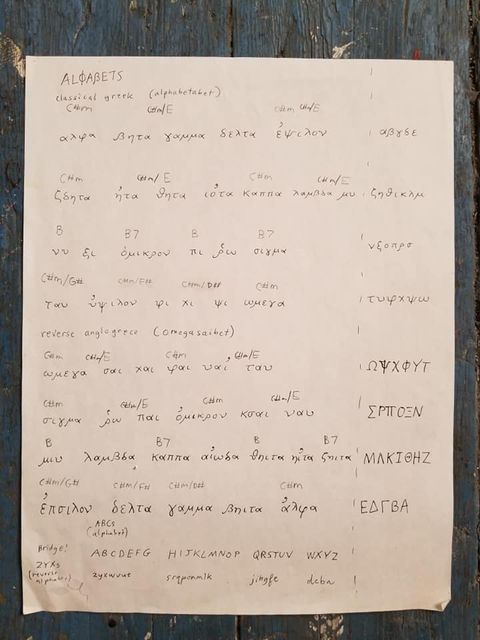 ALΦABETS
classical greek (alphabetabet)
C#m C#m/E C#m C#m/E
αλφα βητα γαμμα δελτα ἐψιλον αβγδε
C#m C#m/E C#m C#m/E
ζδητα ἠτα θητα ἰοτα καππα λαμβδα μυ ζηθικλμ
B B7 B B7
νυ ξι ὀμικρον πι ῥω σιγμα νξοπρσ
C#m/G# C#m/F# C#m/D# C#m
ταυ ὐψιλον φι χι ψι ωμεγα τυφχψω
reverse anglogreece (omegasaibet)
C#m C#m/E C#m C#m/E
ωμεγα σαι χαι φαι υαἰ ταυ ΩΨΧΦΥΤ
C#m C#m/E C#m C#m/E
σιγμα ῥω παι ὀμικρον κσαι ναυ ΣΡΠΟΞΝ
B B7 B B7
μιυ λαμβδα καππα αἰωδα θηιτα ηἰτα ζηιτα ΜΛΚΙΘΗΖ
C#m/G# C#m/F# C#m/D# C#m
ἐπσιλον δελτα γαμμα βηιτα ἀλφα ΕΔΓΒΑ
ABCs
(alphabet)
Bridge! ABCDEFG HIJKLMNOP QRSTUV WXYZ
ZYXs
(reverse alphabet) zyxwvut srqponmlk jihgfe dcba